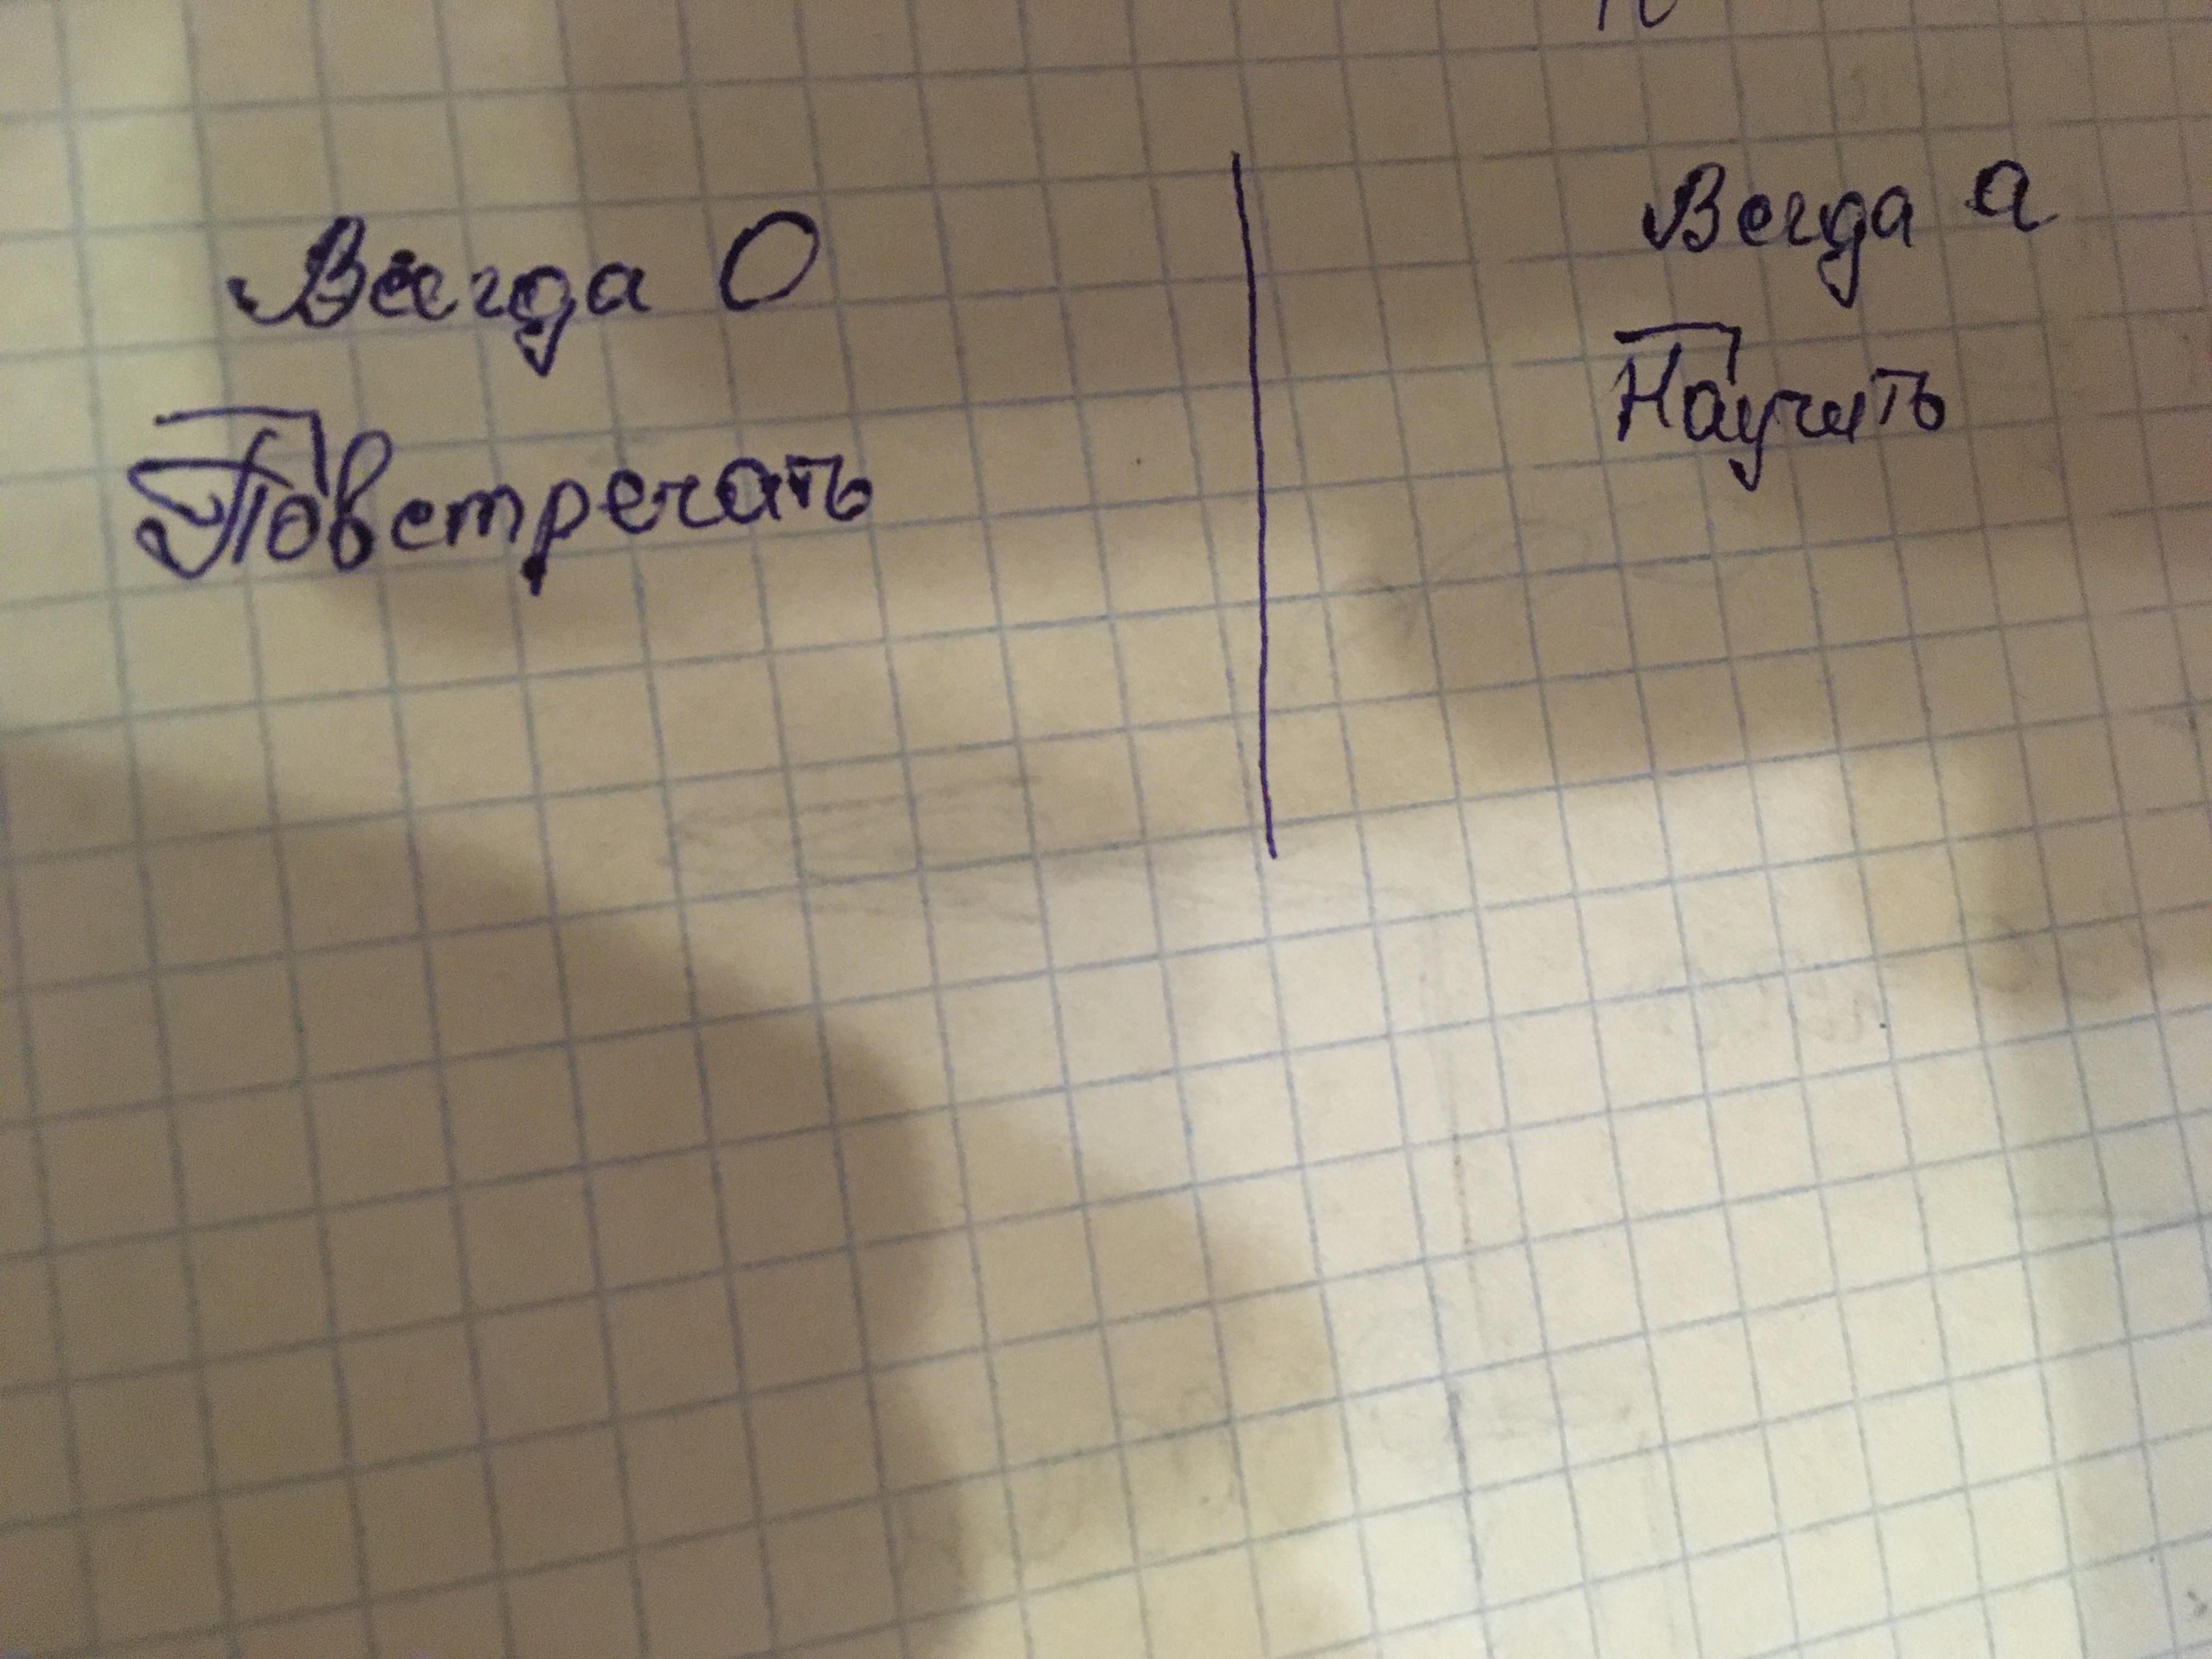 Всегда О
Повстречать
Всегда а
Научить